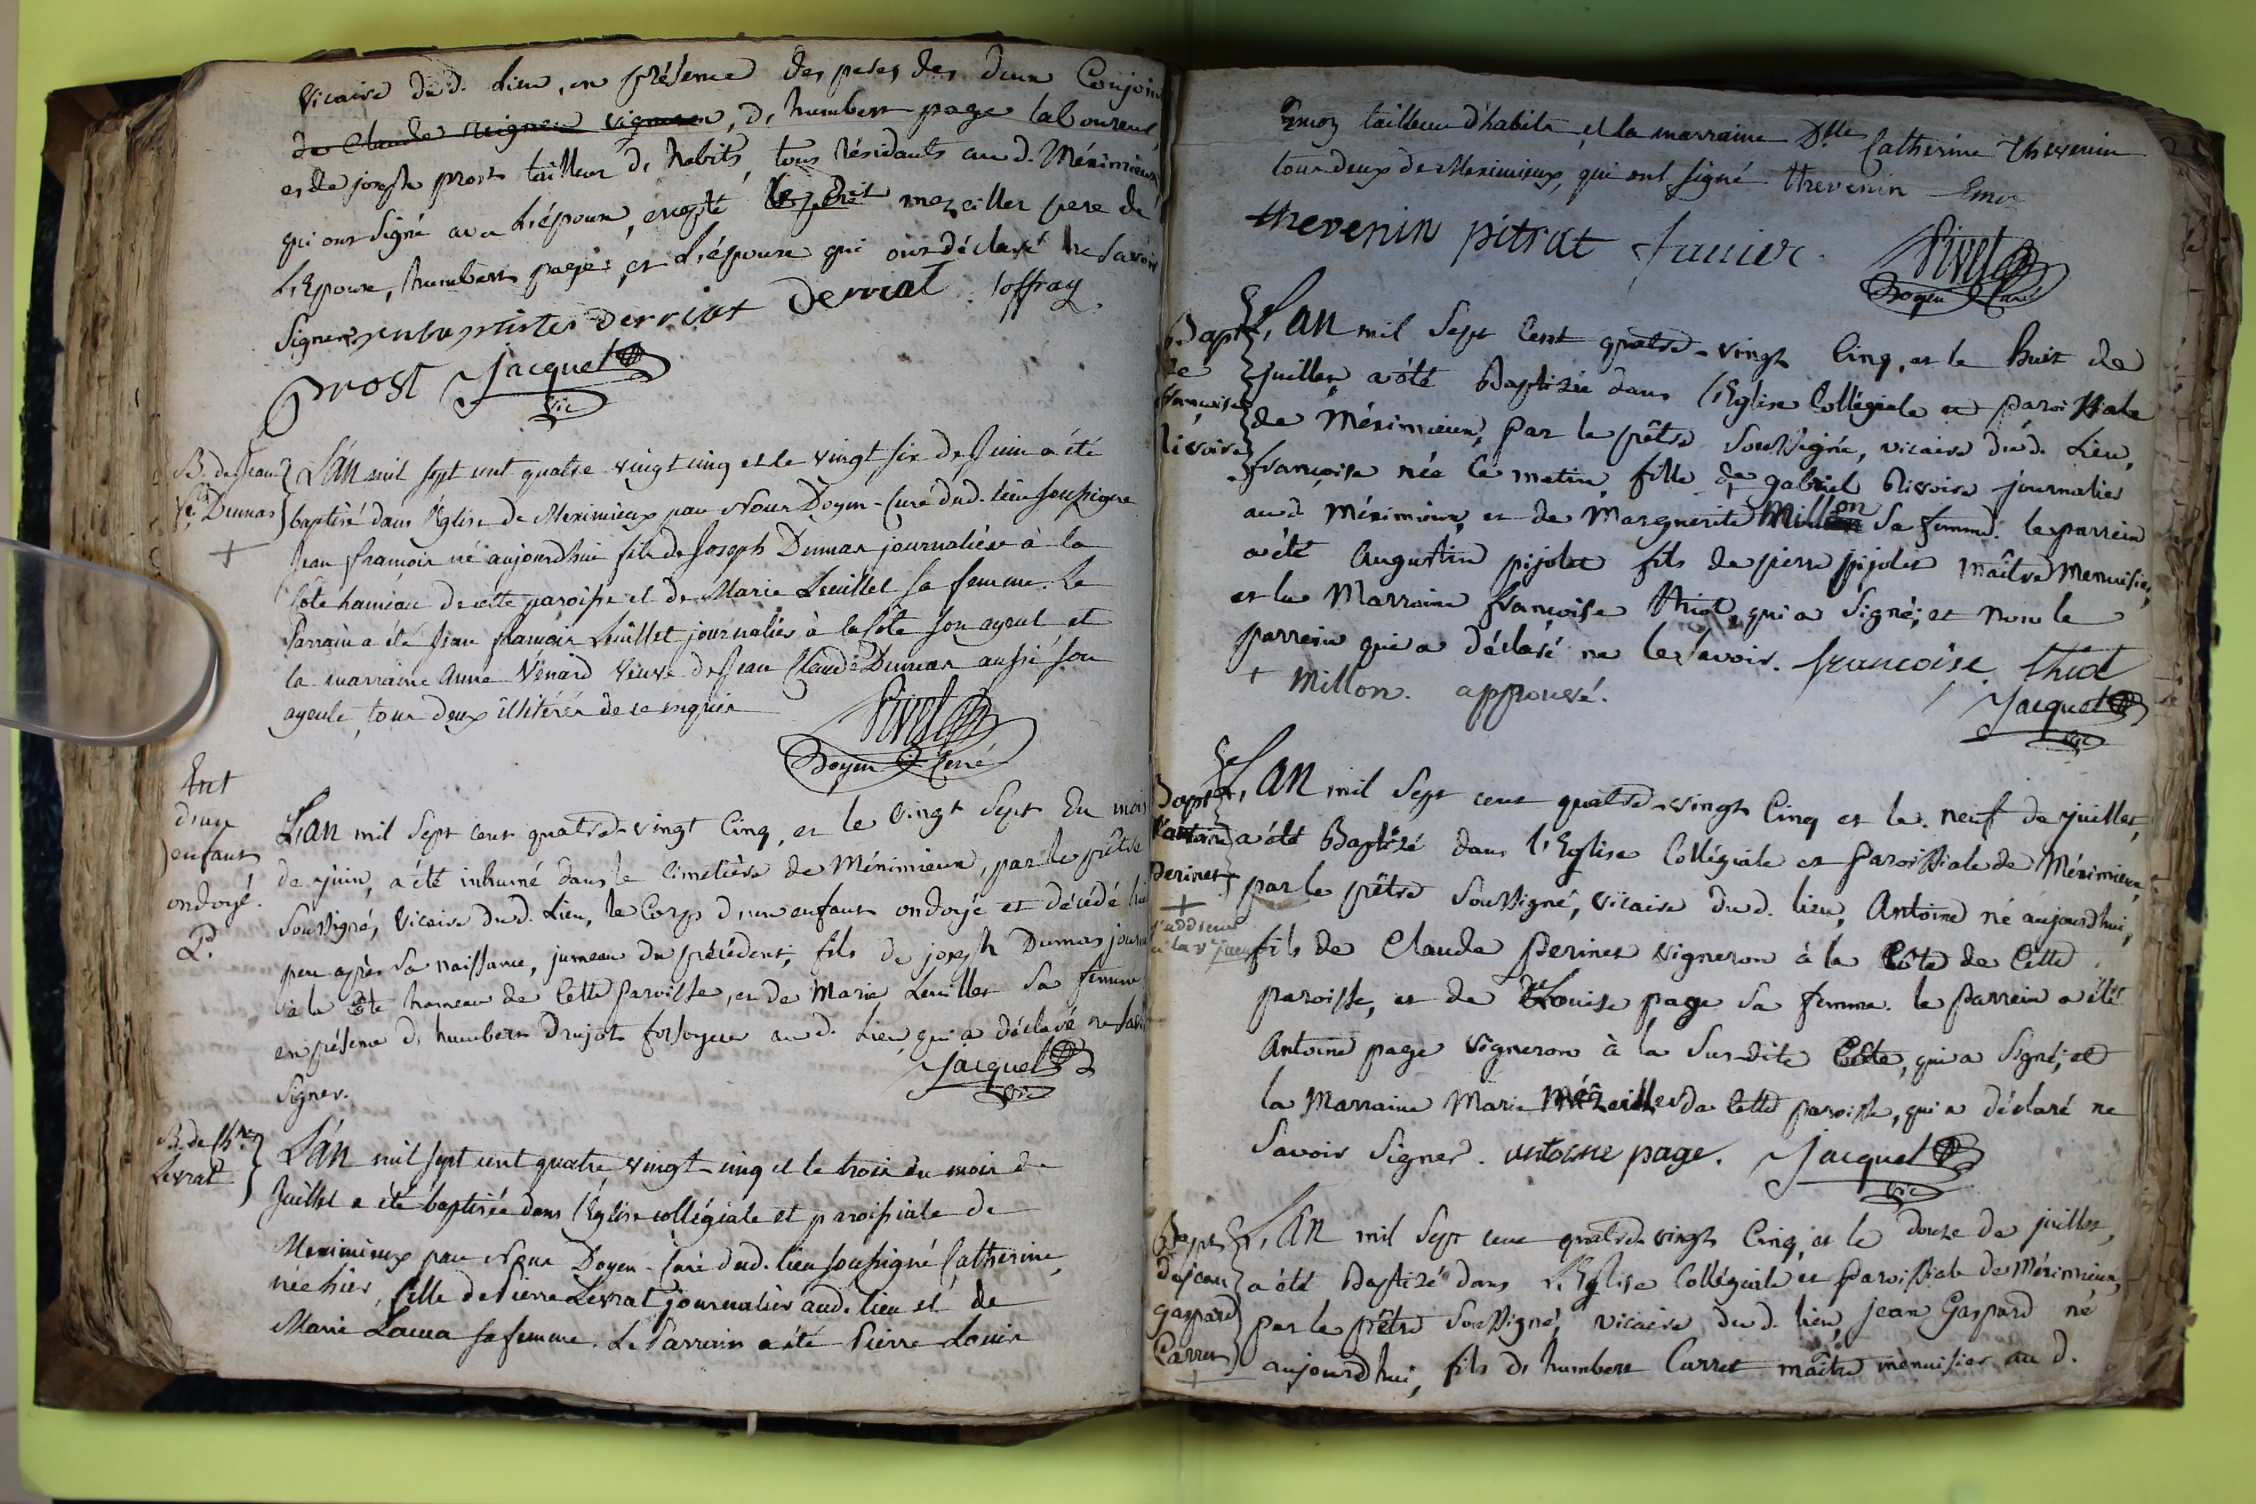 vicaire dud. lieu, en présence des peres des deux Conjoints
de Claude vigneron, d'humbert page laboureur,
et de joseph prost tailleur d'habits, tous résidants aud. Méximieux
qui ont signé avec L'époux, excepté mezeiller pere de
L'Epouse, humbert page, et L'épouse qui ont déclaré ne savoir
signer. derriat Derriat joffray
prost Jacquet
vic
B. de Jean
fs. Dumas
L'an mil sept cent quatre vingt cinq et le vingt six de Juin a été
baptisé dans l'église de Meximieux par Nous Doyen-Curé dud. lieu soussigné
Jean françois né aujourd'hui fils de Joseph Dumas journalier à la
Côte hameau de cette paroisse et de Marie Leuillet sa femme. Le
Parrain a été Jean françois Leuillet journalier à la Côte son ayeul et
la marraine Anne Vénard veuve de Jean Claude Dumas aussi son
ayeule, tous deux illitérés de ce enquis
Pivet
Doyen Curé
Ent
d'un
enfant
ondoyé.
Pd.
L'an mil sept cent quatre-vingt Cinq, et le vingt sept Du mois
de juin, a été inhumé dans le Cimetière de Méximieux, par le prêtre
soussigné, vicaire Dud. Lieu, le Corp d'un enfant ondoyé et décédé
peu après sa naissance, jumeau du précédent; fils de joseph Dumas
à la Côte hameau de Cette paroisse, et de Marie Leuillet sa femme
en présence d'humbert Drujot fossoyeur aud. Lieu, qui a déclaré ne
signer.
Jacquet
vic
B. de Cne
Levrat
L'an mil sept cent quatre vingt-cinq et le trois du mois de
Juillet a été baptisée dans l'Eglise collégiale et paroissiale de
Meximieux par Nous Doyen-Curé dud. lieu soussigné Catherine,
née hier, fille de Pierre Levrat journalier aud. lieu et de
Marie Laeua sa femme. Le Parrain a été Pierre Louis
Emoz tailleur d'habits, et la marraine Dlle Catherine thevenin
tous deux de Meximieux, qui ont signé thevenin Emoz
thevenin pitrat Junier
Pivet
Doyen Curé
Bapt
de
françoise
livoire
L'AN mil Sept Cent quatre-vingt Cinq, et le huit de
juillet, a été Baptisée dans l'Eglise Collégiale et paroissiale
de Méximieux, par le prêtre soussigné, vicaire dud. Lieu,
françoise née ce matin, fille de gabriel blivoire journalier
aud. Méximieux, et de Marguerite Millon sa femme. le parrein
a été Augustin pijolet fils de pierre pijolet Maître Menuisier,
et la Marraine françoise thiot, qui a signé; et non le
parrein qui a déclaré ne le savoir. francoise thiot
+ Millon. approuvé.
Jacquet
vic
Bapt
d'antoine
Perinet
L'AN mil Sept cent quatre-vingt Cinq et le neuf de juillet,
a été Baptisé dans l'Eglise Collégiale et Paroissiale de Méximieux,
par le prêtre soussigné, vicaire dud. lieu, Antoine né aujourd'hui,
fils de Claude Perinet vigneron à la Côte de Cette
paroisse, et de Louise page sa femme. le parrein a été
Antoine page vigneron à la sus-dite Côte, qui a signé; et
la Marraine Marie Mézeiller de Cette paroisse, qui a déclaré ne
savoir signer. antoine page. Jacquet
vic
Bapt
de jean
gaspard
Carret
L'AN mil Sept cent quatre-vingt Cinq, et le douze de juillet,
a été Baptisé dans L'Eglise Collégiale et Paroissiale de Méximieux,
par le prêtre soussigné, vicaire dud. lieu, jean Gaspard né
aujourd'hui, fils d'humbert Carret maître menuisier au d.